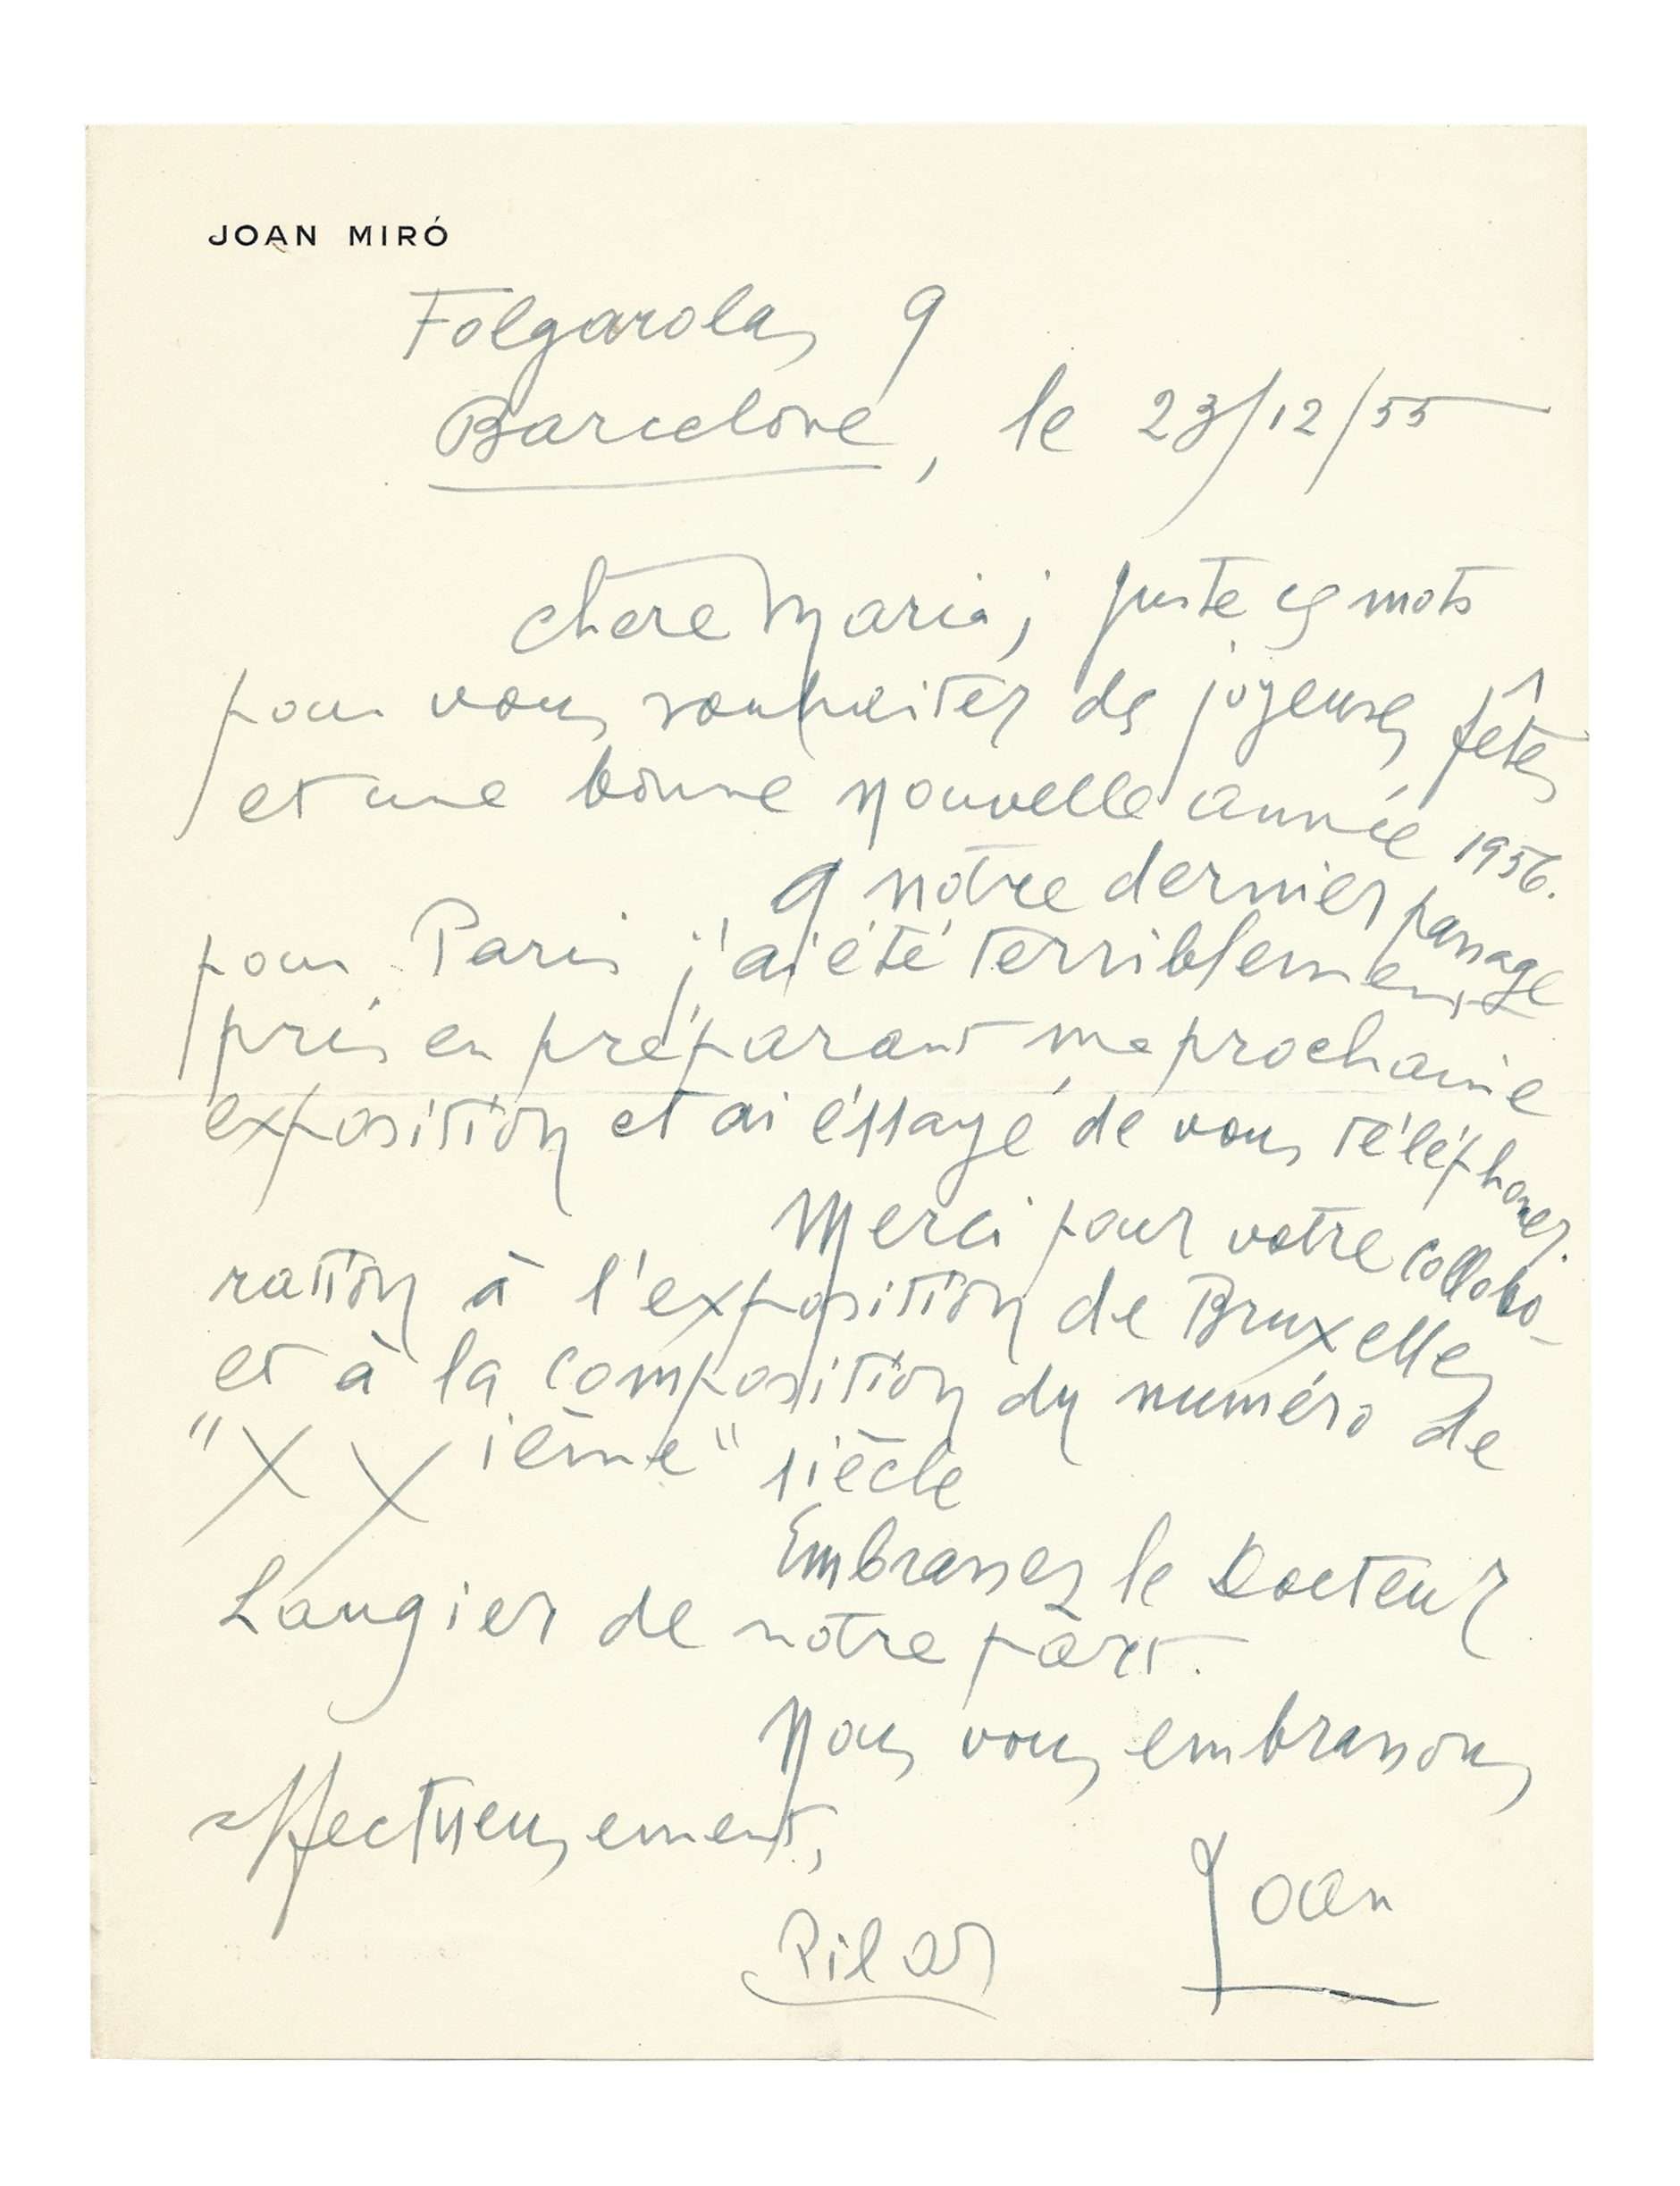 JOAN MIRÓ
Folgarolas 9
Barcelone, le 23/12/55
Chere Maria, juste ces mots
pour vous souhaiter des joyeuses fêtes
et une bonne nouvelle année 1956.
A notre dernier passage
pour Paris j'ai été terriblement
pris en préparant ma prochaine
exposition et ai éssayé de vous téléphoner.
Merci pour votre collabo-
ration à l'exposition de Bruxelles
et à la composition du numéro de
"XXième" siècle
Embrassez le Docteur
Laugier de notre part.
Nous vous embrassons
affectueusement,
Pilar Joan